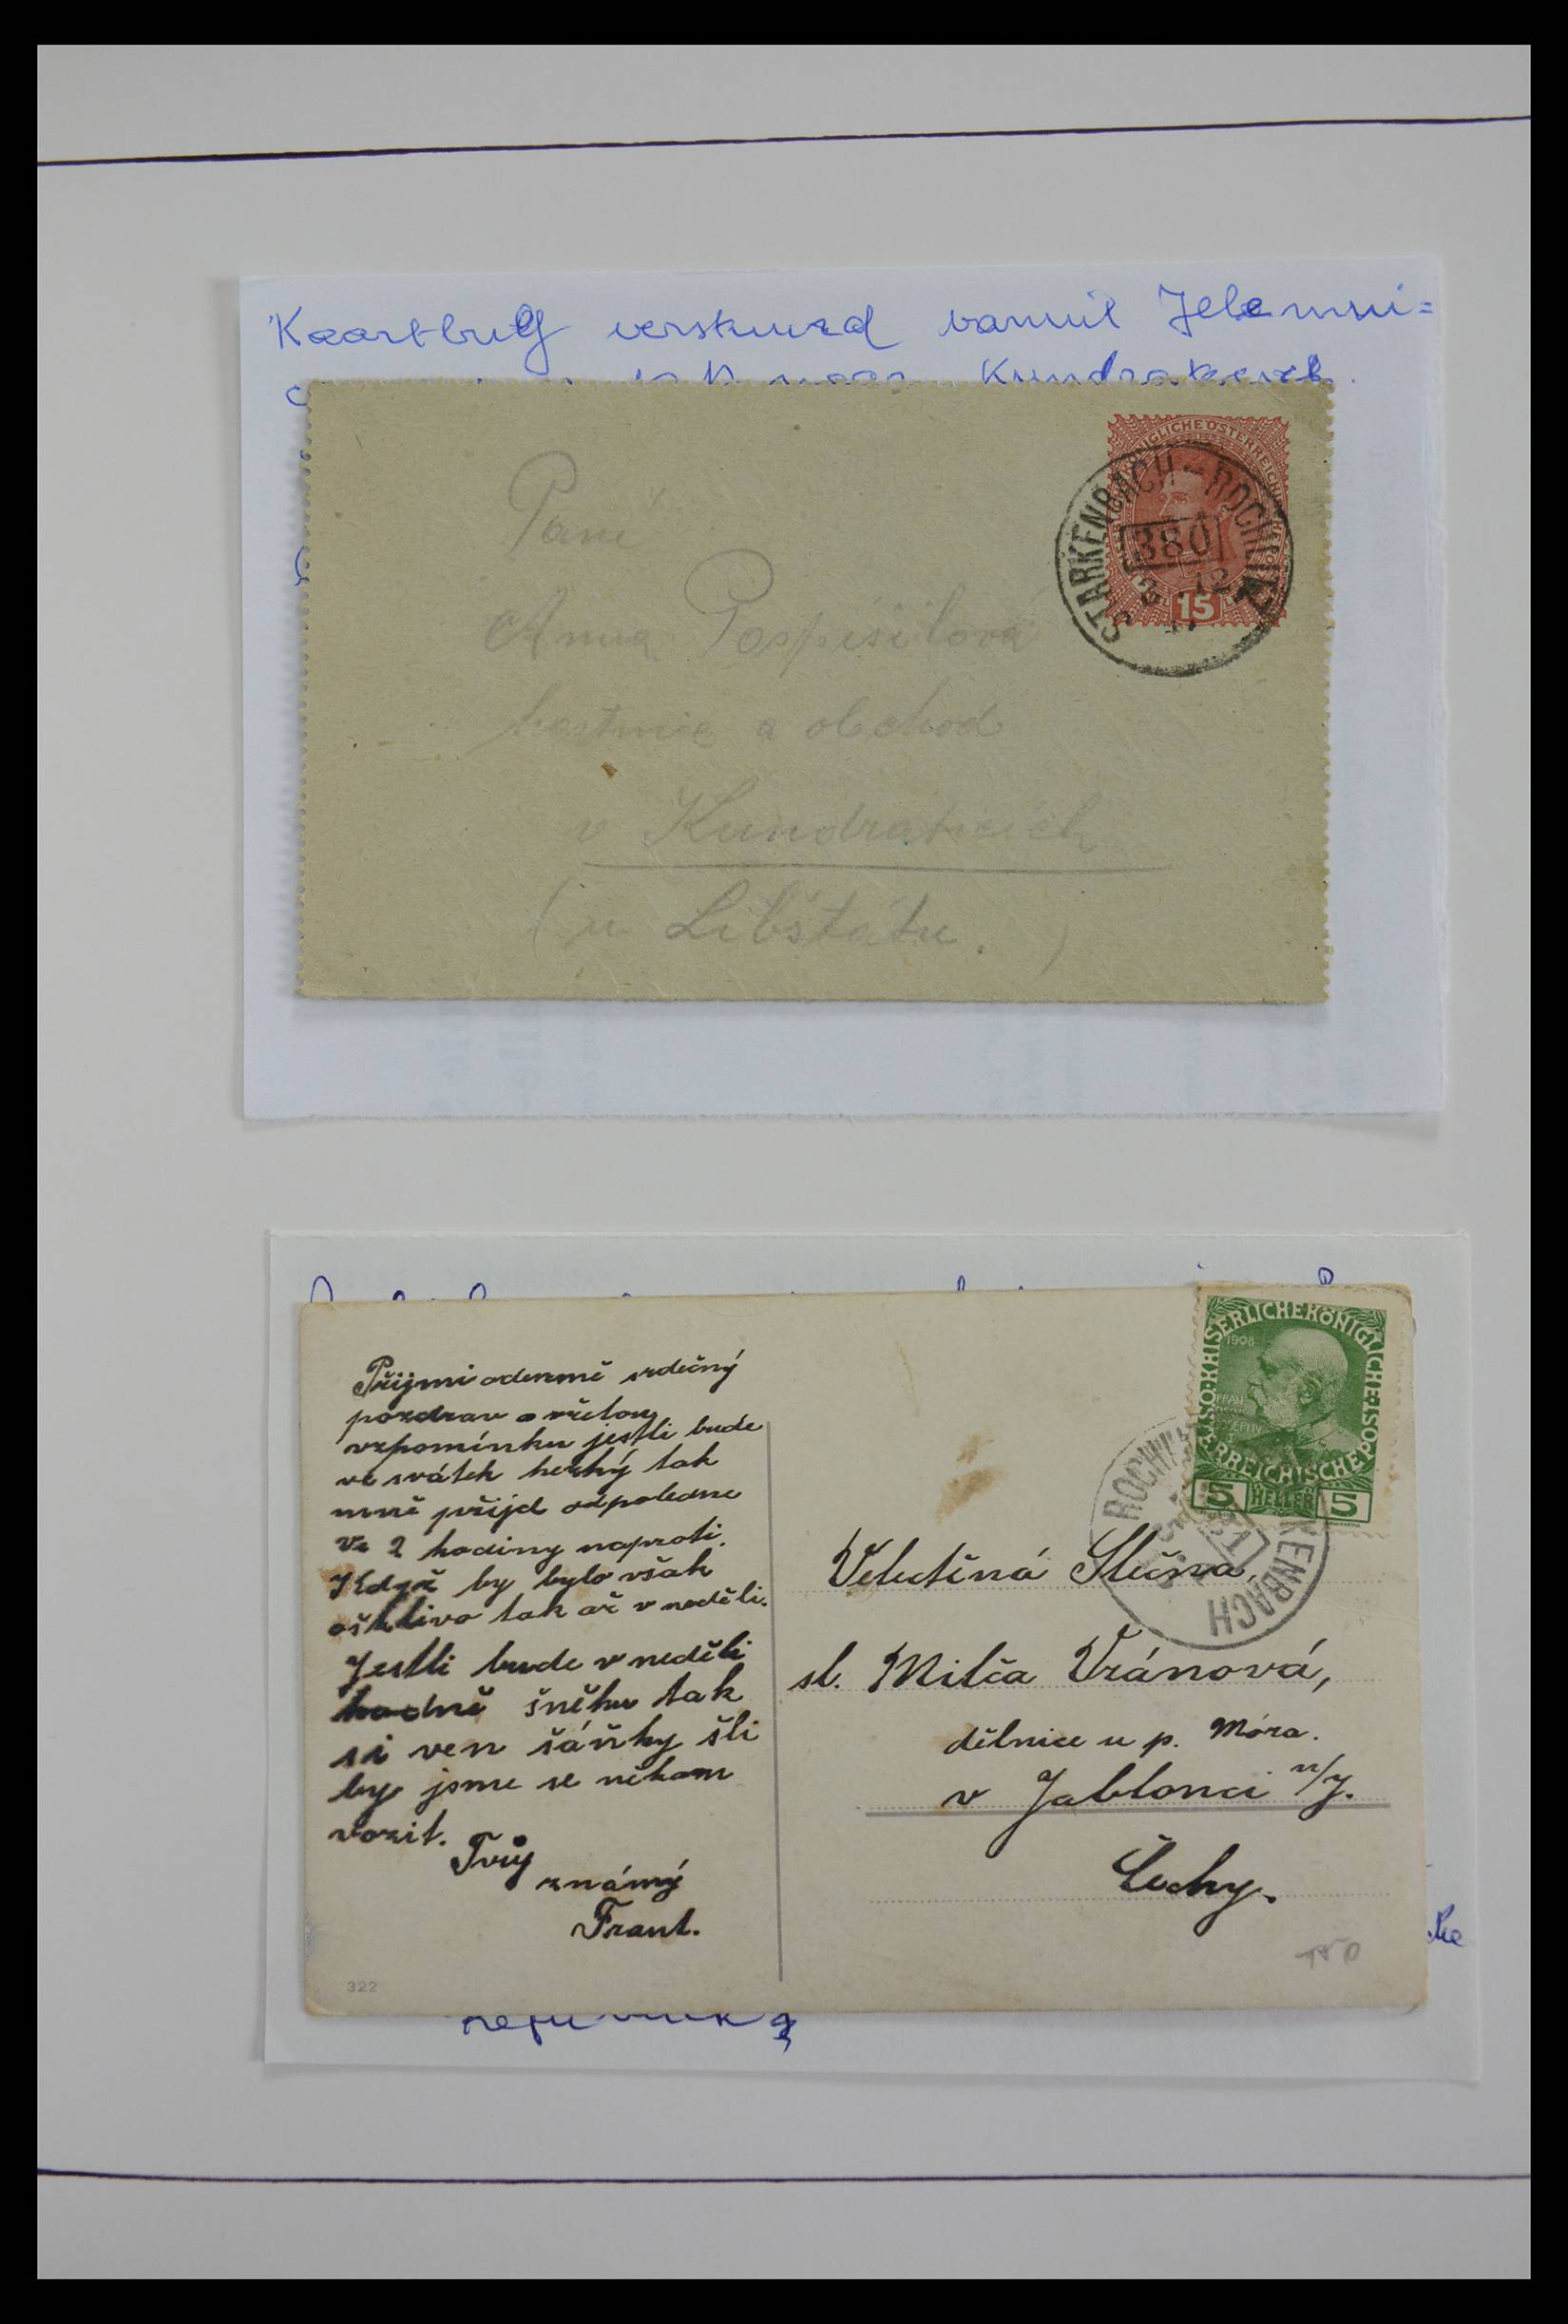 Kaartbrief verstuurd vanuit Jelemni=
naar Kundraticích.
KÖNIGLICHE ÖSTERREICHISCHE
15
STARKENBACH - ROCHLITZ
380
12
Paní
Anna Pospíšilová
hostinec a obchod
v Kundraticích
(u Libštátu.)
KAISERLICHE KÖNIGLICHE ÖSTERREICHISCHE POST
1908
5 HELLER 5
ROCHLITZ
STARKENBACH
381
Přijmi odemně srdečný
pozdrav a vřelou
vzpomínku jestli bude
ve svátek hezký tak
mně přijd odpoledne
Ve 2 hodiny naproti.
Když by bylo však
ošklivo tak až v neděli.
Jestli bude v neděli
hodně sněhu tak
si ven sáňky šli
by jsme se někam
vozit.
Tvůj
známý
Frant.
322
Velectěná Slečna,
sl. Milča Vránová,
dělnice u p. Móra.
v Jablonci n/J.
Čechy.